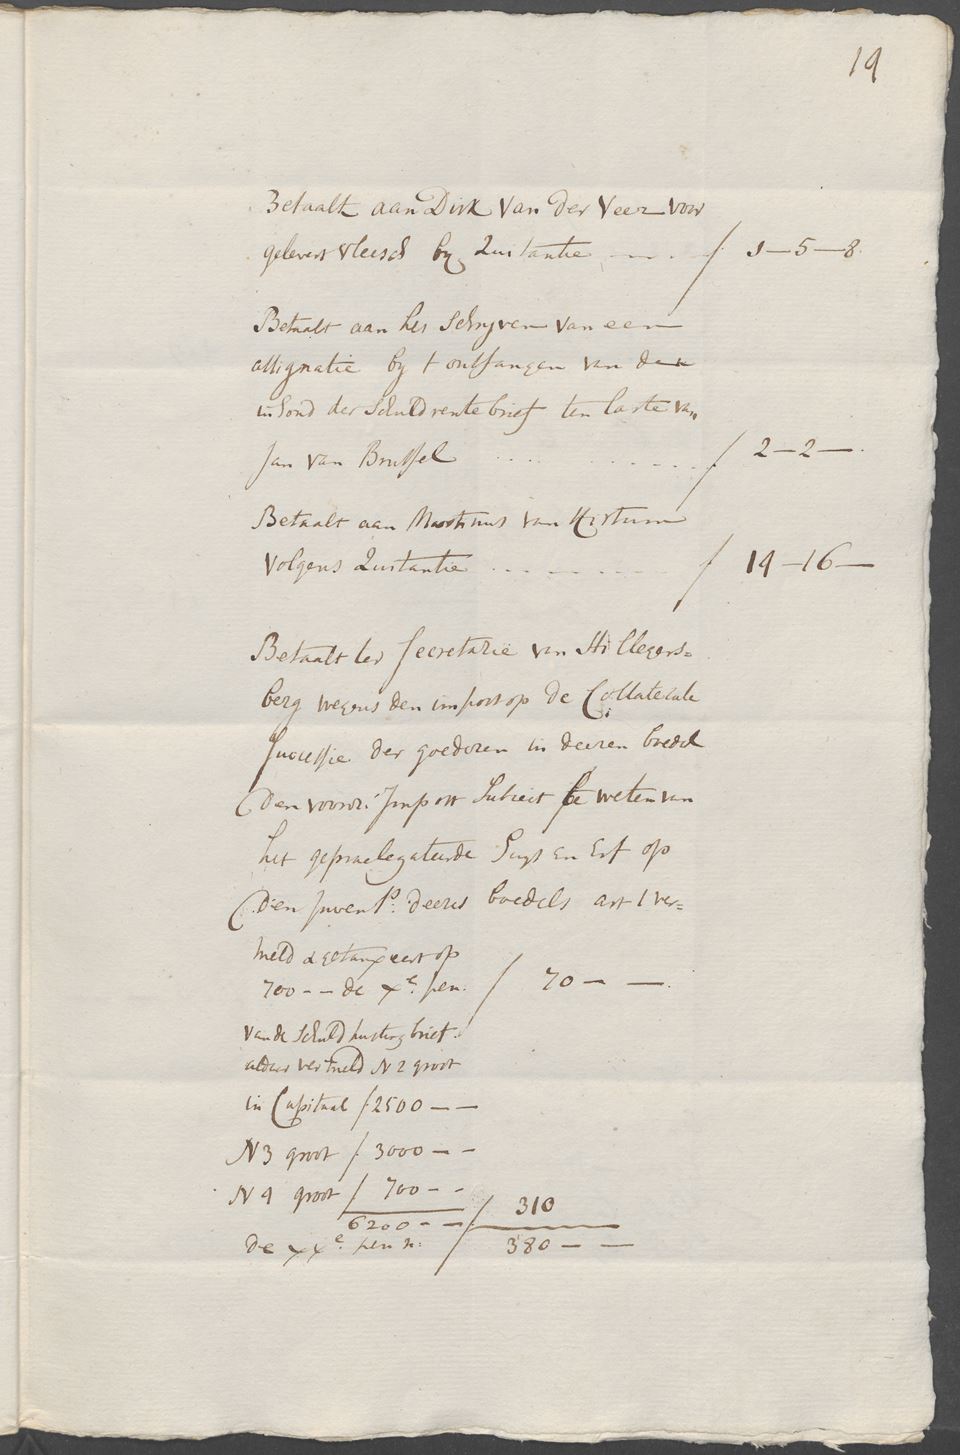 19
Betaalt aan Dirk van der Veer voor
gelevert vleesch by Quitantie ƒ 5-5-8
Betaalt aan het Schryven van een
assignatie by t ontfangen van den
inhoud der Schuldrentebrief ten laste van
Jan van Brussel ƒ 2-2-
Betaalt aan Martinus van Kistum
volgens Quitantie ƒ 19-16-
Betaalt ter Secretarie van Hillegers=
berg wegens den impost op de Collaterale
Successie der goederen in deezen boedel
den voorsz: Impost Subiect te weten van
het gepraelegateerde Huys en Erf op
den Invents: deeses boedels art 1 ver=
meld & getaxeert op
700 - - de xe. pen. ƒ 70 - -
van de Schuld kusting brief
aldaar vermeld N 2 groot
in Capitaal ƒ 2500 - -
N 3 groot ƒ 3000 - -
N 4 groot ƒ 700 - -
6200 - - ƒ 310
de xxe. penn: 380 - -